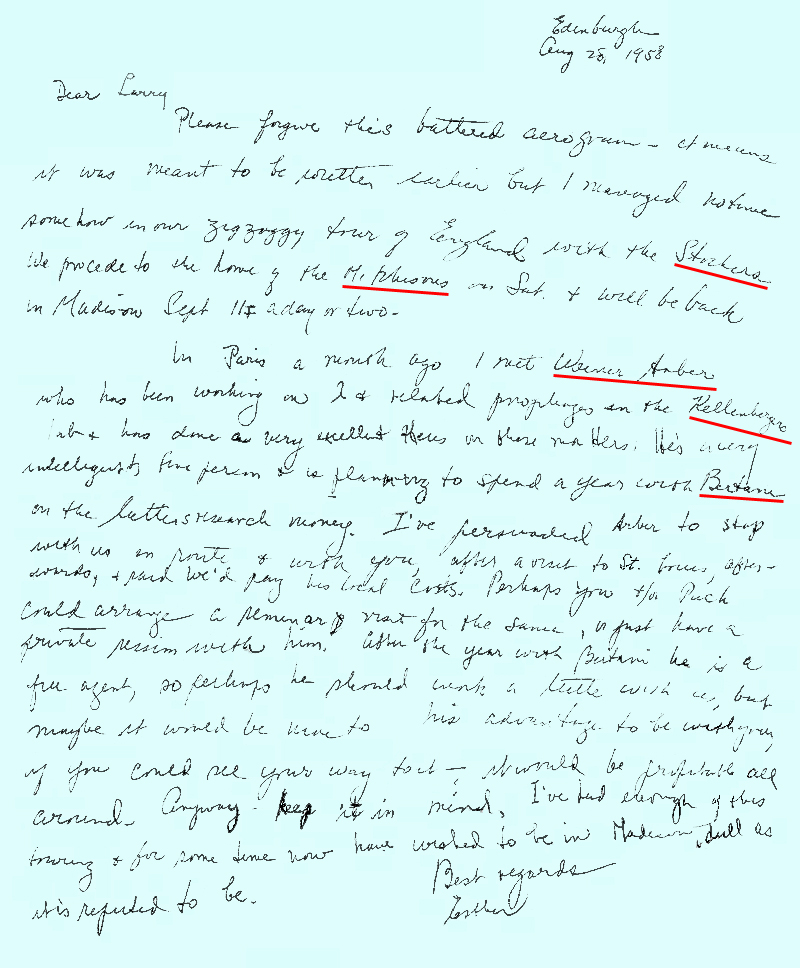 Edinburgh
Aug 28, 1958
Dear Larry
Please forgive this battered aerogram – it means
it was meant to be written earlier but I managed no time
somehow in our zigzaggy tour of England with the Stockers
We procede to the home of the on Sat. & will be back
in Madison Sept 11 ± a day or two –
In Paris a month ago I met Werner Arber
who has been working on λ & related prophages in the Kellenbergers
lab & has done a very excellent thesis on these matters. He's a very
intelligent, fine person & is planning to spend a year with Bertani
on the latters research money. I've persuaded Arber to stop
with us en route & with you, after a visit to St. Louis, after-
wards, & said we'd pay his local costs. Perhaps you &/or Puck
could arrange a seminar visit for the same, or just have a
private session with him. After the year with Bertani he is a
free agent, so perhaps he should work a little with us, but
maybe it would be more to his advantage to be with you,
if you could see your way to it –, it would be profitable all
around – Anyway – keep it in mind. I've had enough of this
touring & for some time now have wished to be in Madison, dull as
it is reputed to be.
Best regards
Esther